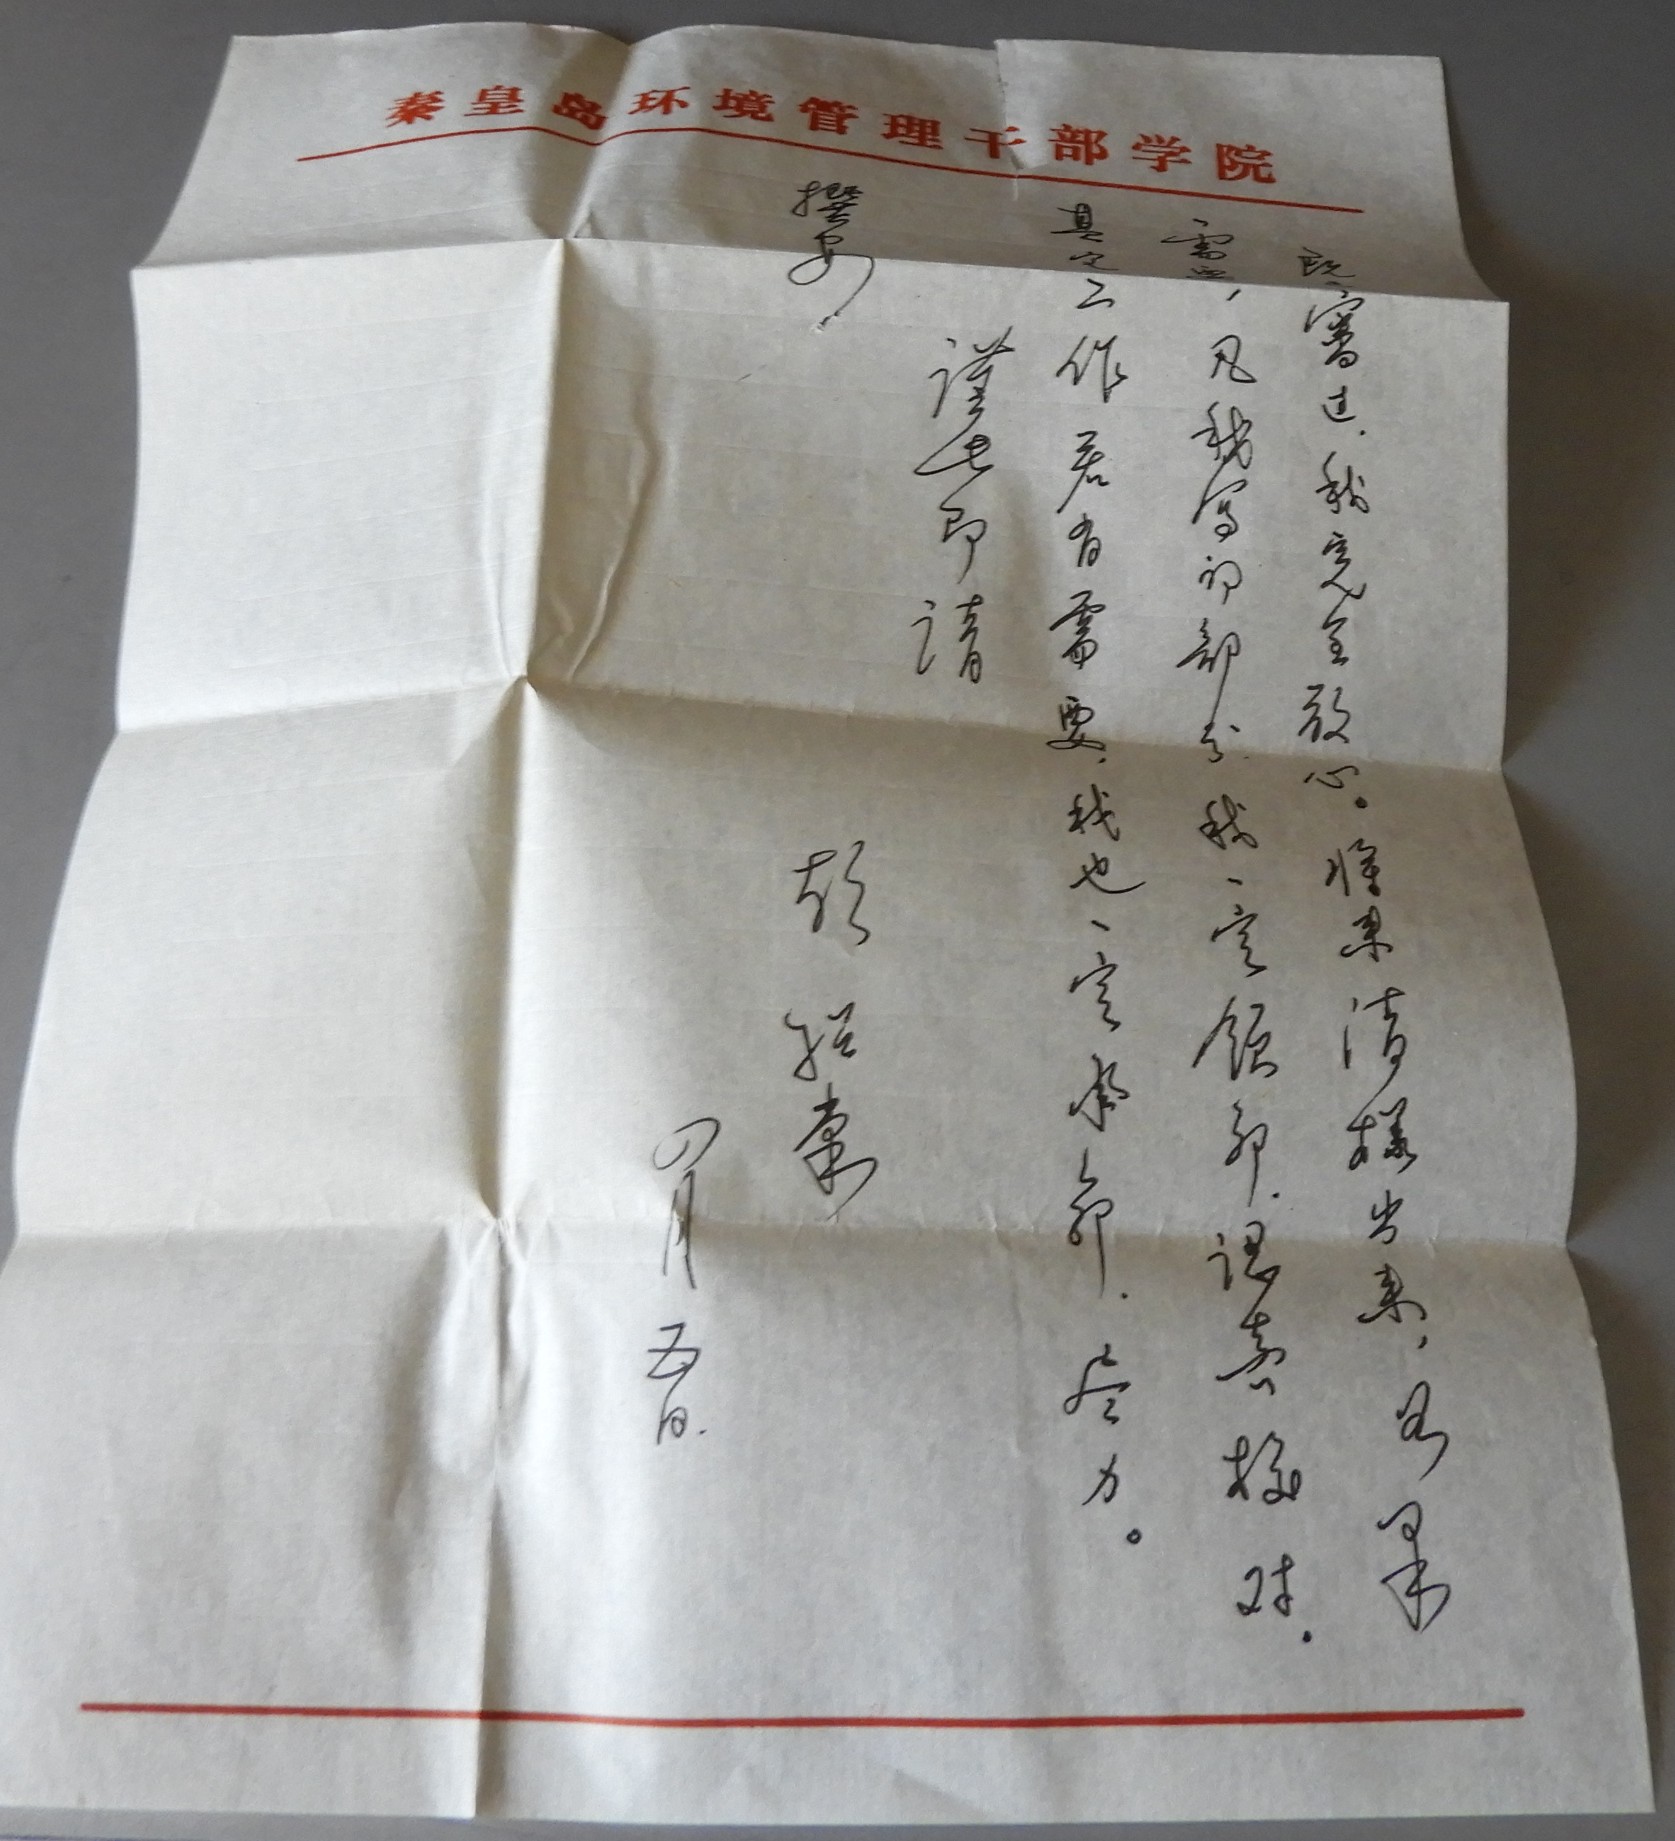 秦皇岛环境管理干部学院
既审过，我完全放心。将来清样出来，如果
需要，凡我写的部分，我一定领卯，认真校对。
其它工作若有需要，我也一定承命，尽力。
谨此即请
撰安
彭
四月五日.